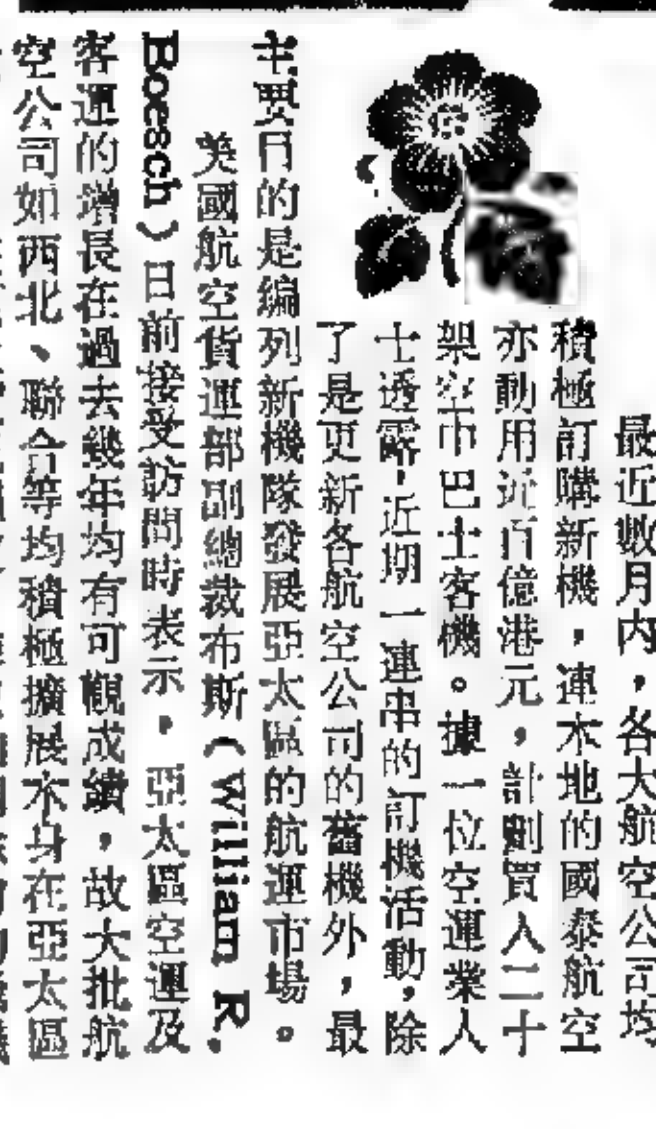 最近數月內，各大航空公司均
積極訂購新機，連本地的國泰航空
亦動用近百億港元，計劃買入二十
架空中巴士客機。據一位空運業人
士透露，近期一連串的訂機活動，除
了是更新各航空公司的舊機外，最
主要目的是編列新機隊發展亞太區的航運市場。
美國航空貨運部副總裁布斯（William R.
Boesch）日前接受訪問時表示，亞太區空運及
客運的增長在過去幾年均有可觀成績，故大批航
空公司如西北、聯合等均積極擴展本身在亞太區